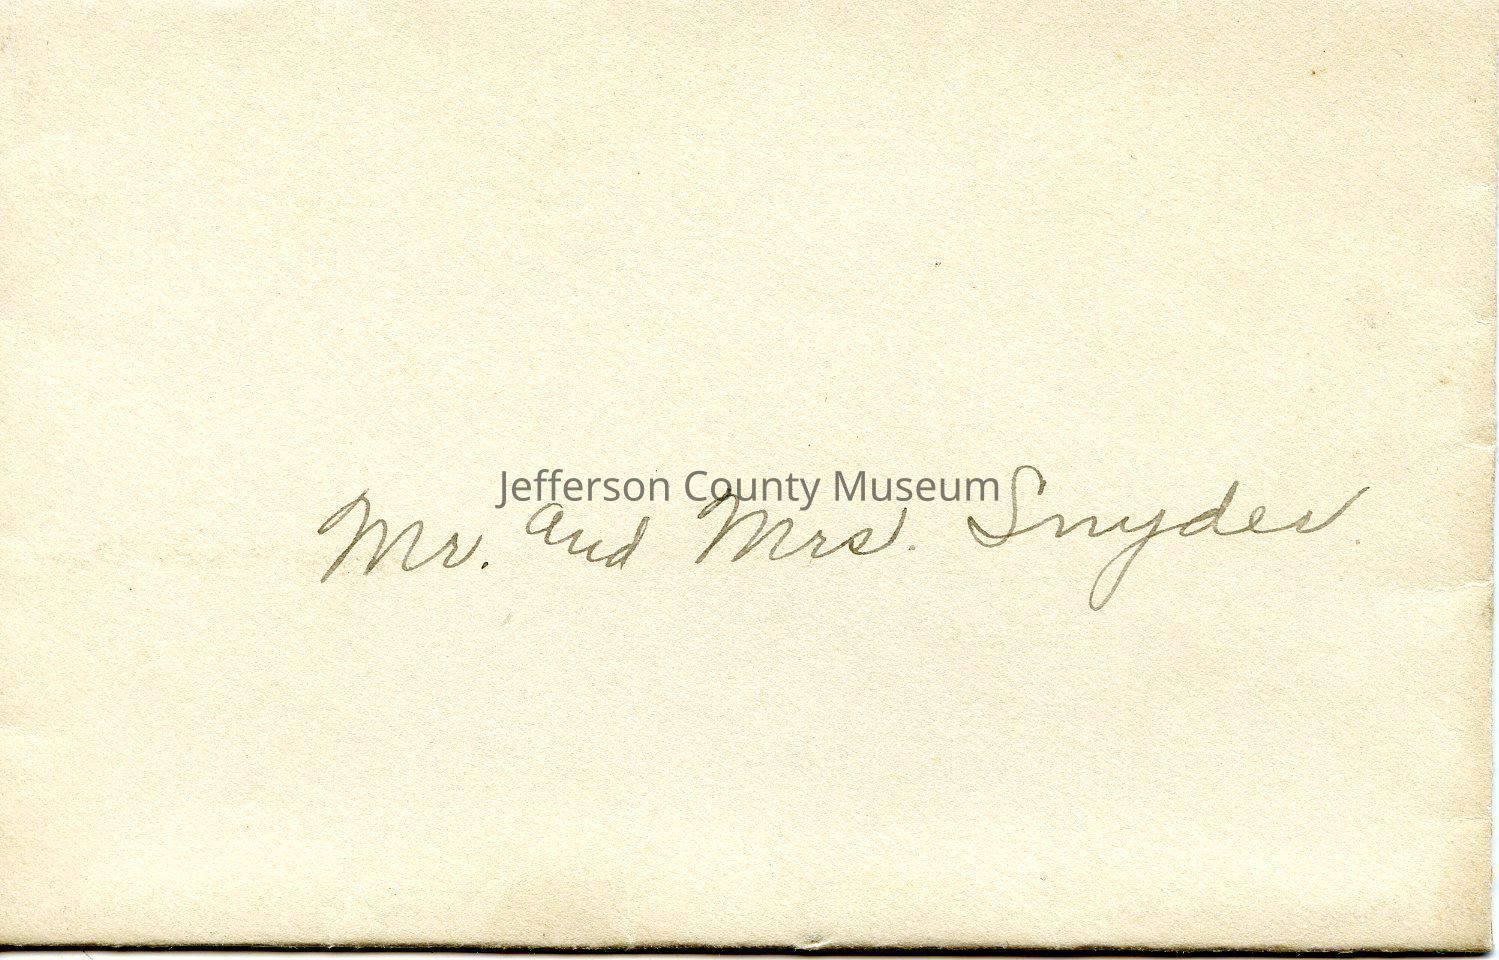 Jefferson County Museum
Mr. and Mrs. Snyder.